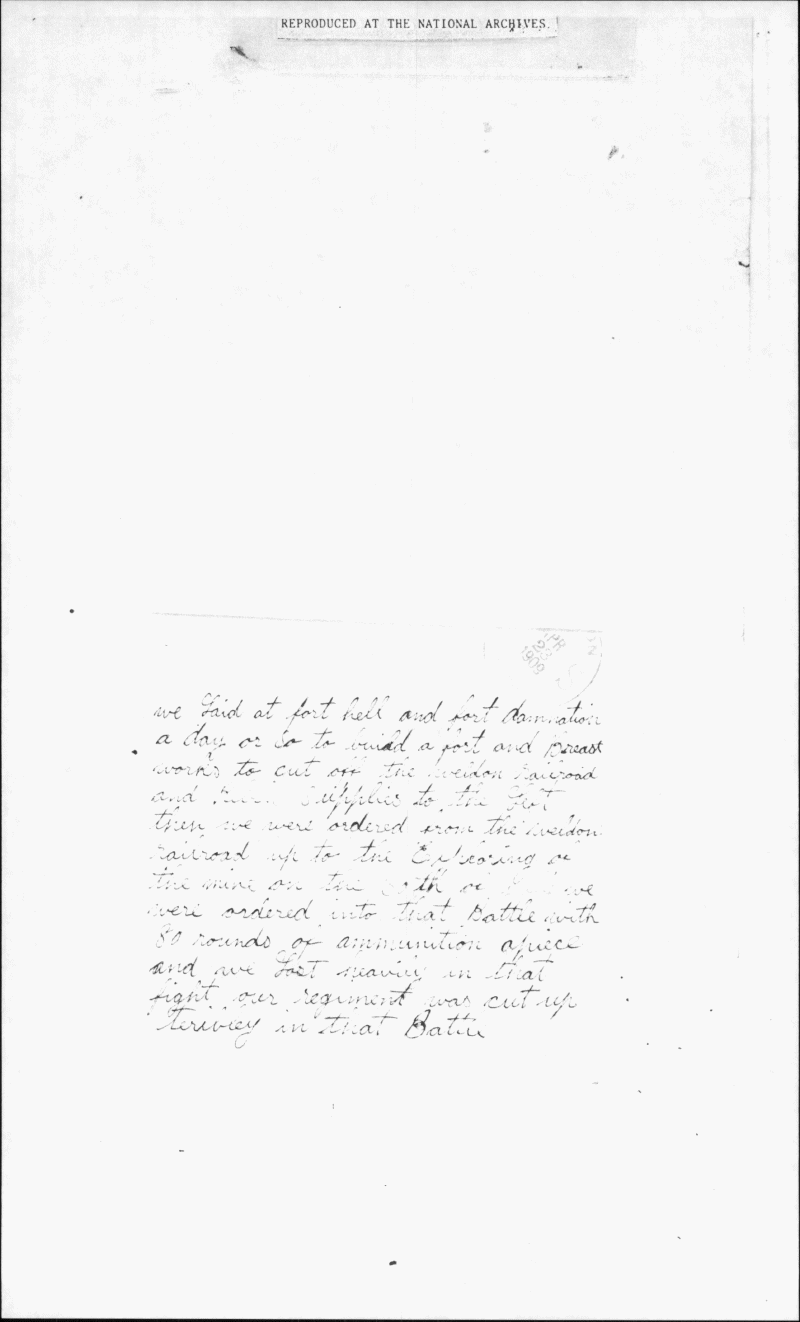 REPRODUCED AT THE NATIONAL ARCHIVES.
APR
23
1909
we Laid at fort hell and fort damnation
a day or so to build a fort and Breast
works to cut off the weldon Railroad
and Supplies to the
then we were ordered from the weldon
Railroad up to the Exploeing of
the mine on the of we
were ordered into that Battle with
80 rounds of ammunition apiece
and we Lost heavily in that
fight our regiment was cut up
in that Battle